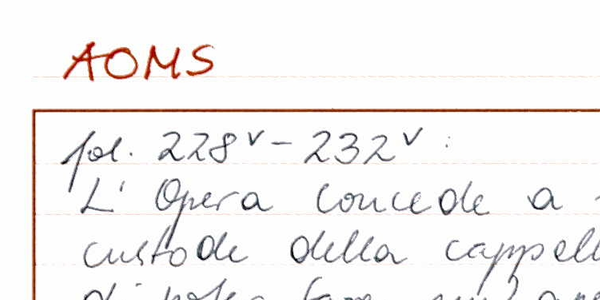 AOMS
fol. 228v - 232v :
L' Opera concede a
custode della cappell
di poter fare